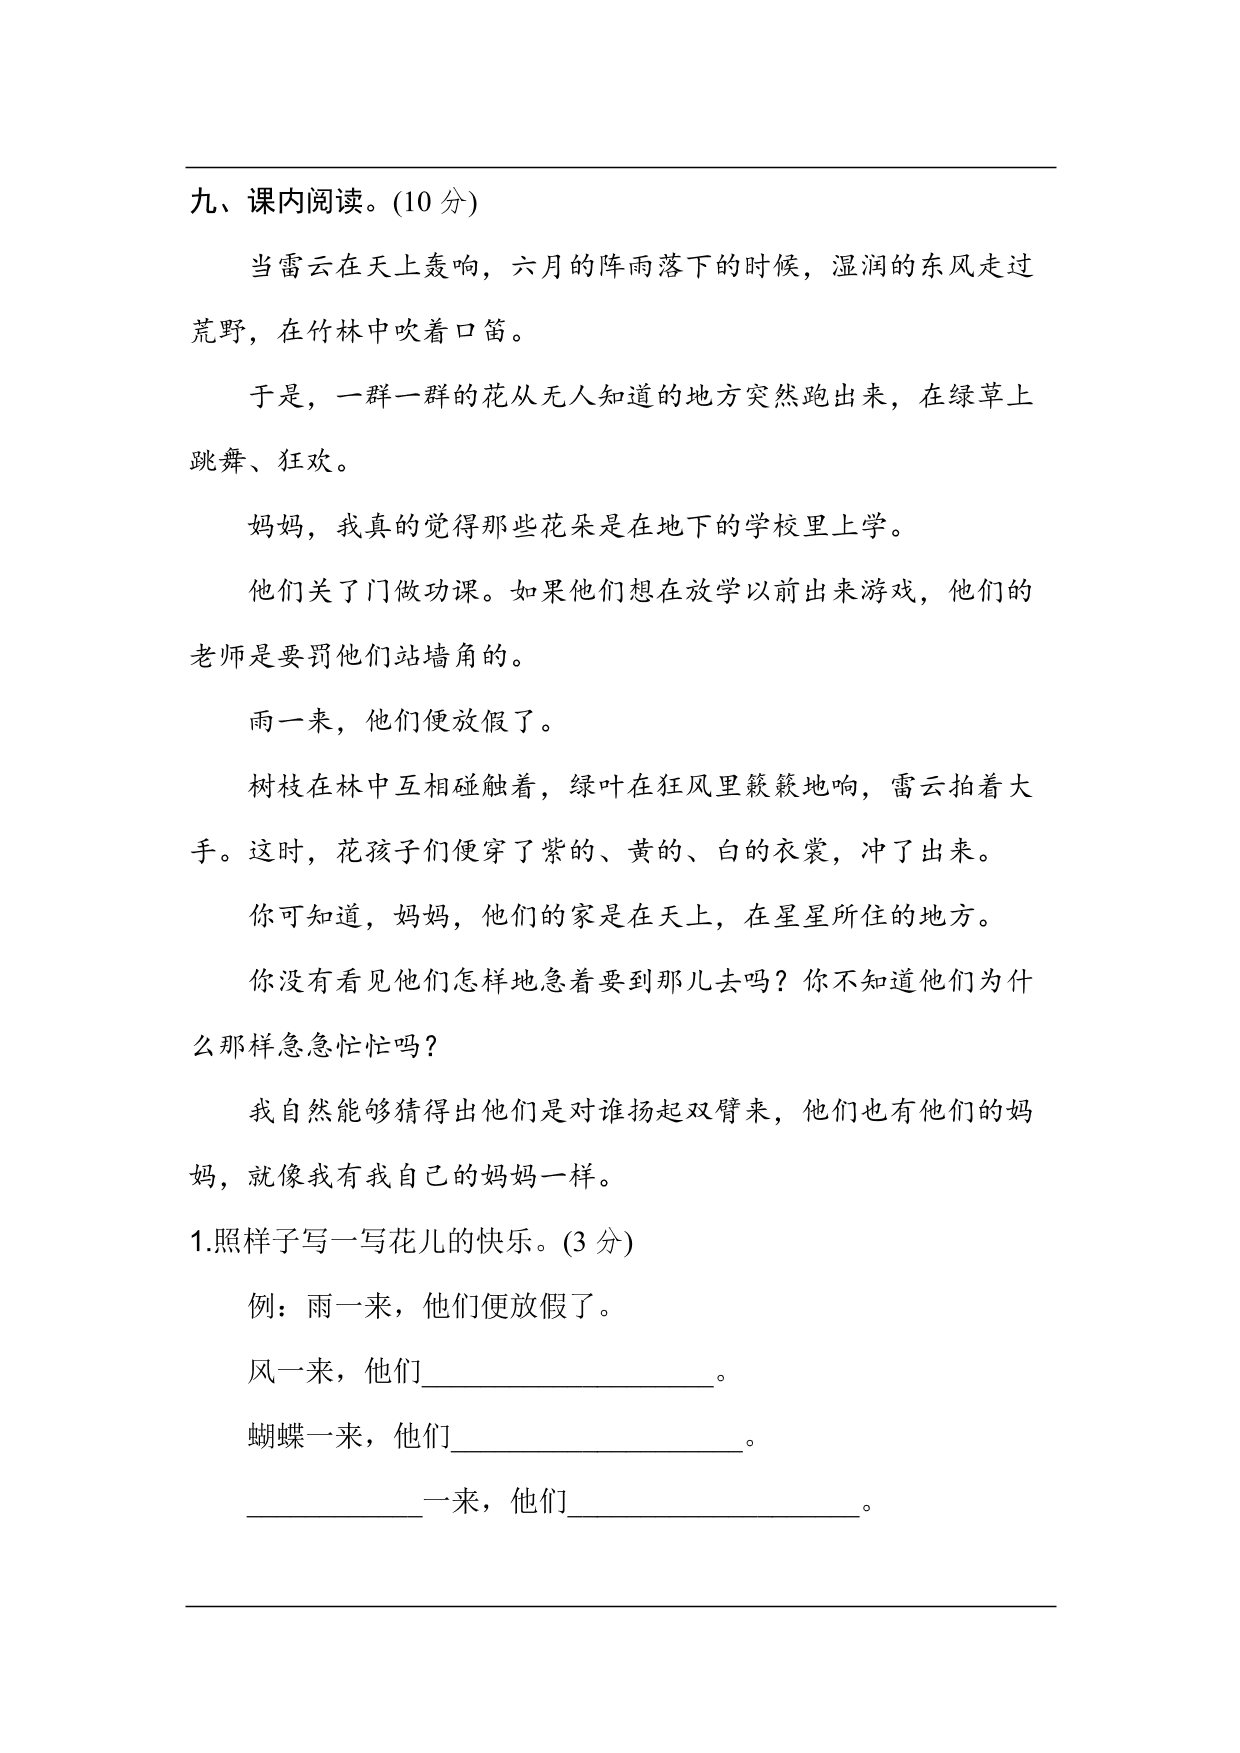 九、课内阅读。(10 分)
当雷云在天上轰响，六月的阵雨落下的时候，湿润的东风走过
荒野，在竹林中吹着口笛。
于是，一群一群的花从无人知道的地方突然跑出来，在绿草上
跳舞、狂欢。
妈妈，我真的觉得那些花朵是在地下的学校里上学。
他们关了门做功课。如果他们想在放学以前出来游戏，他们的
老师是要罚他们站墙角的。
雨一来，他们便放假了。
树枝在林中互相碰触着，绿叶在狂风里簌簌地响，雷云拍着大
手。这时，花孩子们便穿了紫的、黄的、白的衣裳，冲了出来。
你可知道，妈妈，他们的家是在天上，在星星所住的地方。
你没有看见他们怎样地急着要到那儿去吗？你不知道他们为什
么那样急急忙忙吗？
我自然能够猜得出他们是对谁扬起双臂来，他们也有他们的妈
妈，就像我有我自己的妈妈一样。
1.照样子写一写花儿的快乐。(3 分)
例：雨一来，他们便放假了。
风一来，他们____________________。
蝴蝶一来，他们____________________。
____________一来，他们____________________。